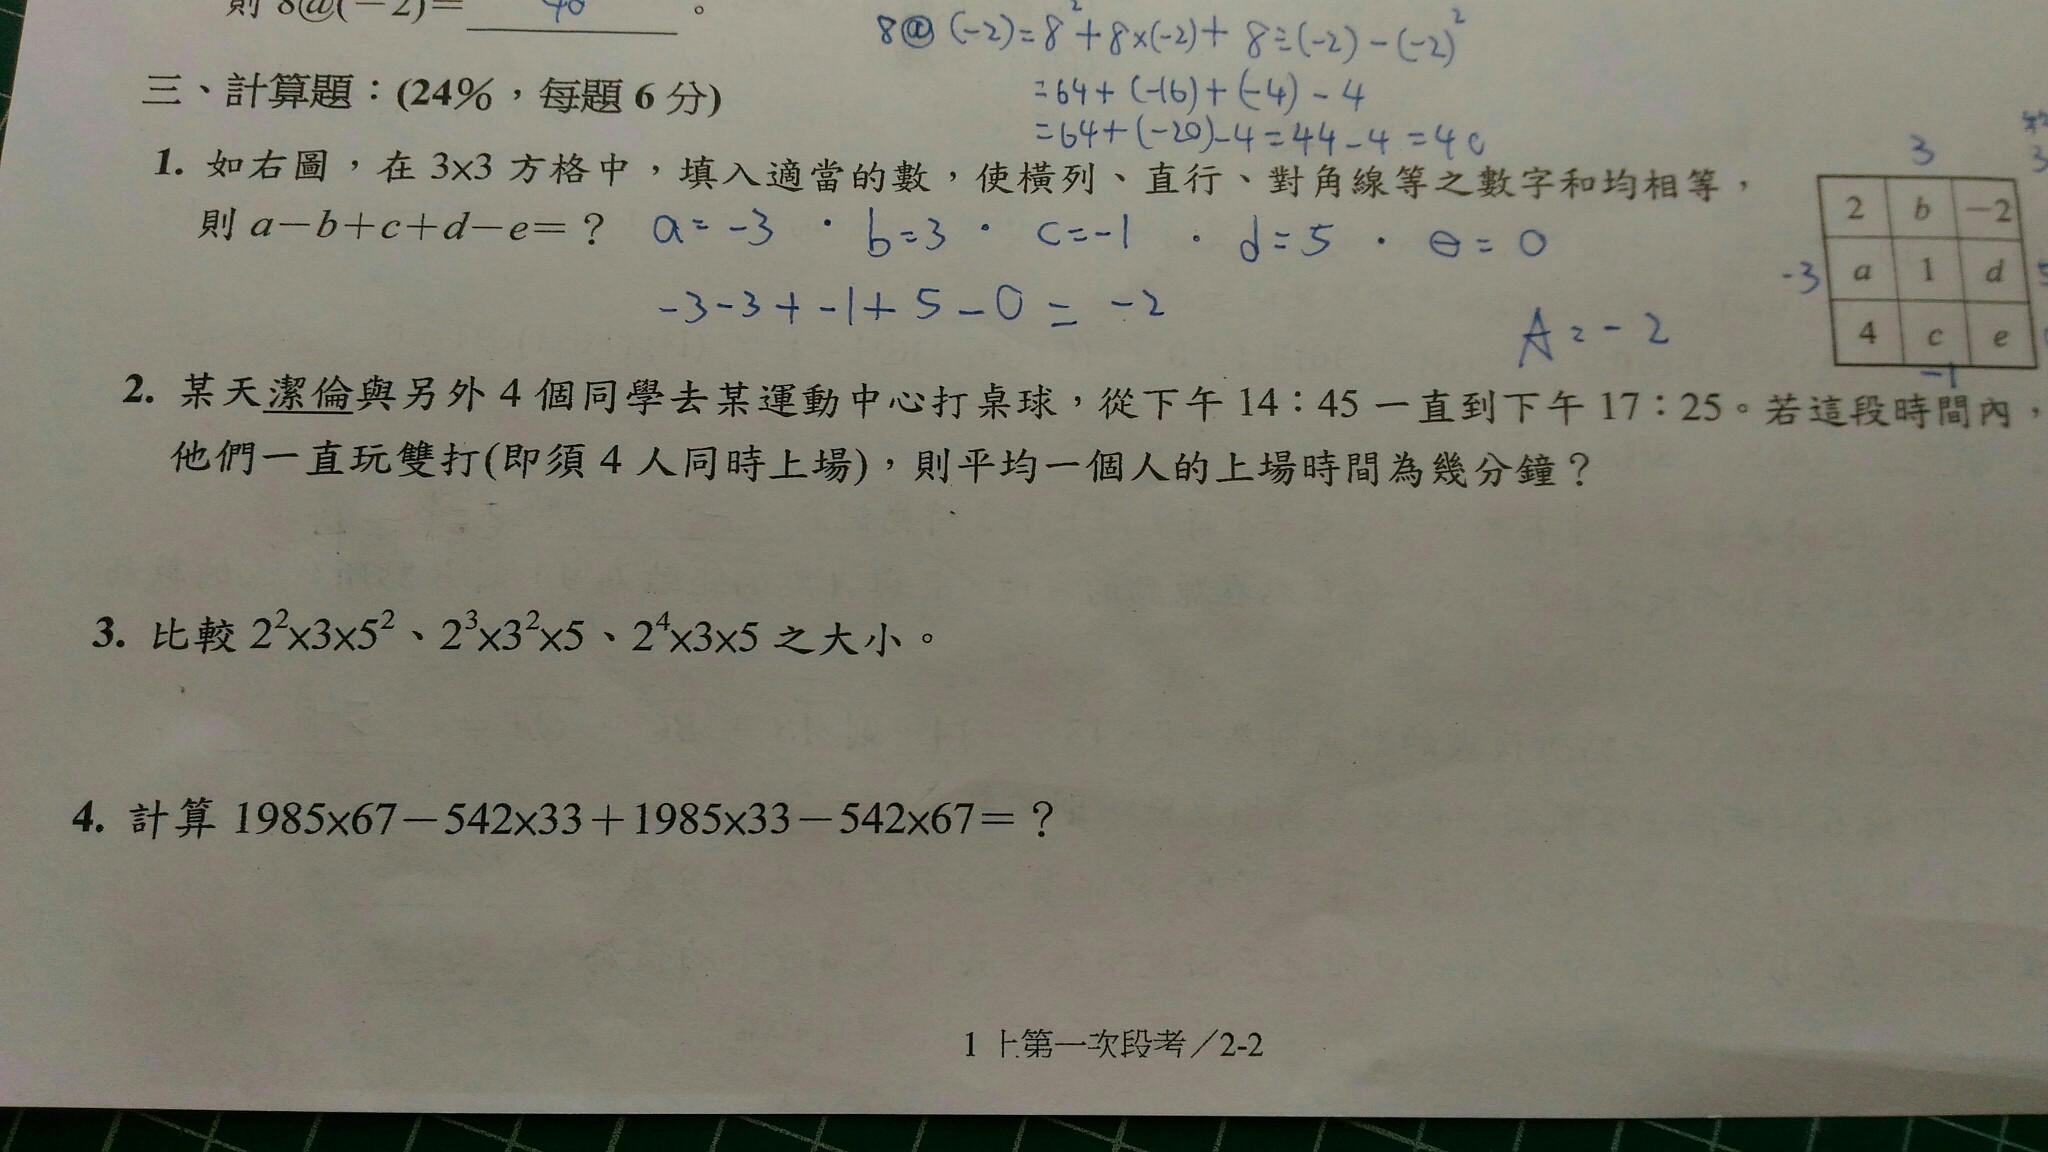 則 8@(−2)= 40 。
8@(-2)=8²+8×(-2)+8÷(-2)-(-2)²
=64+(-16)+(-4)-4
=64+(-20)-4=44-4=40
三、計算題：(24%，每題 6 分)
1. 如右圖，在 3×3 方格中，填入適當的數，使橫列、直行、對角線等之數字和均相等，
則 a−b+c+d−e=？ a=-3 · b=3 · c=-1 · d=5 · e=0
-3-3+-1+5-0=-2
A=-2
3
2 b −2
-3 a 1 d
4 c e
-1
2. 某天潔倫與另外 4 個同學去某運動中心打桌球，從下午 14：45 一直到下午 17：25。若這段時間內，
他們一直玩雙打(即須 4 人同時上場)，則平均一個人的上場時間為幾分鐘？
3. 比較 2²×3×5²、2³×3²×5、2⁴×3×5 之大小。
4. 計算 1985×67−542×33+1985×33−542×67=？
1 上第一次段考／2-2